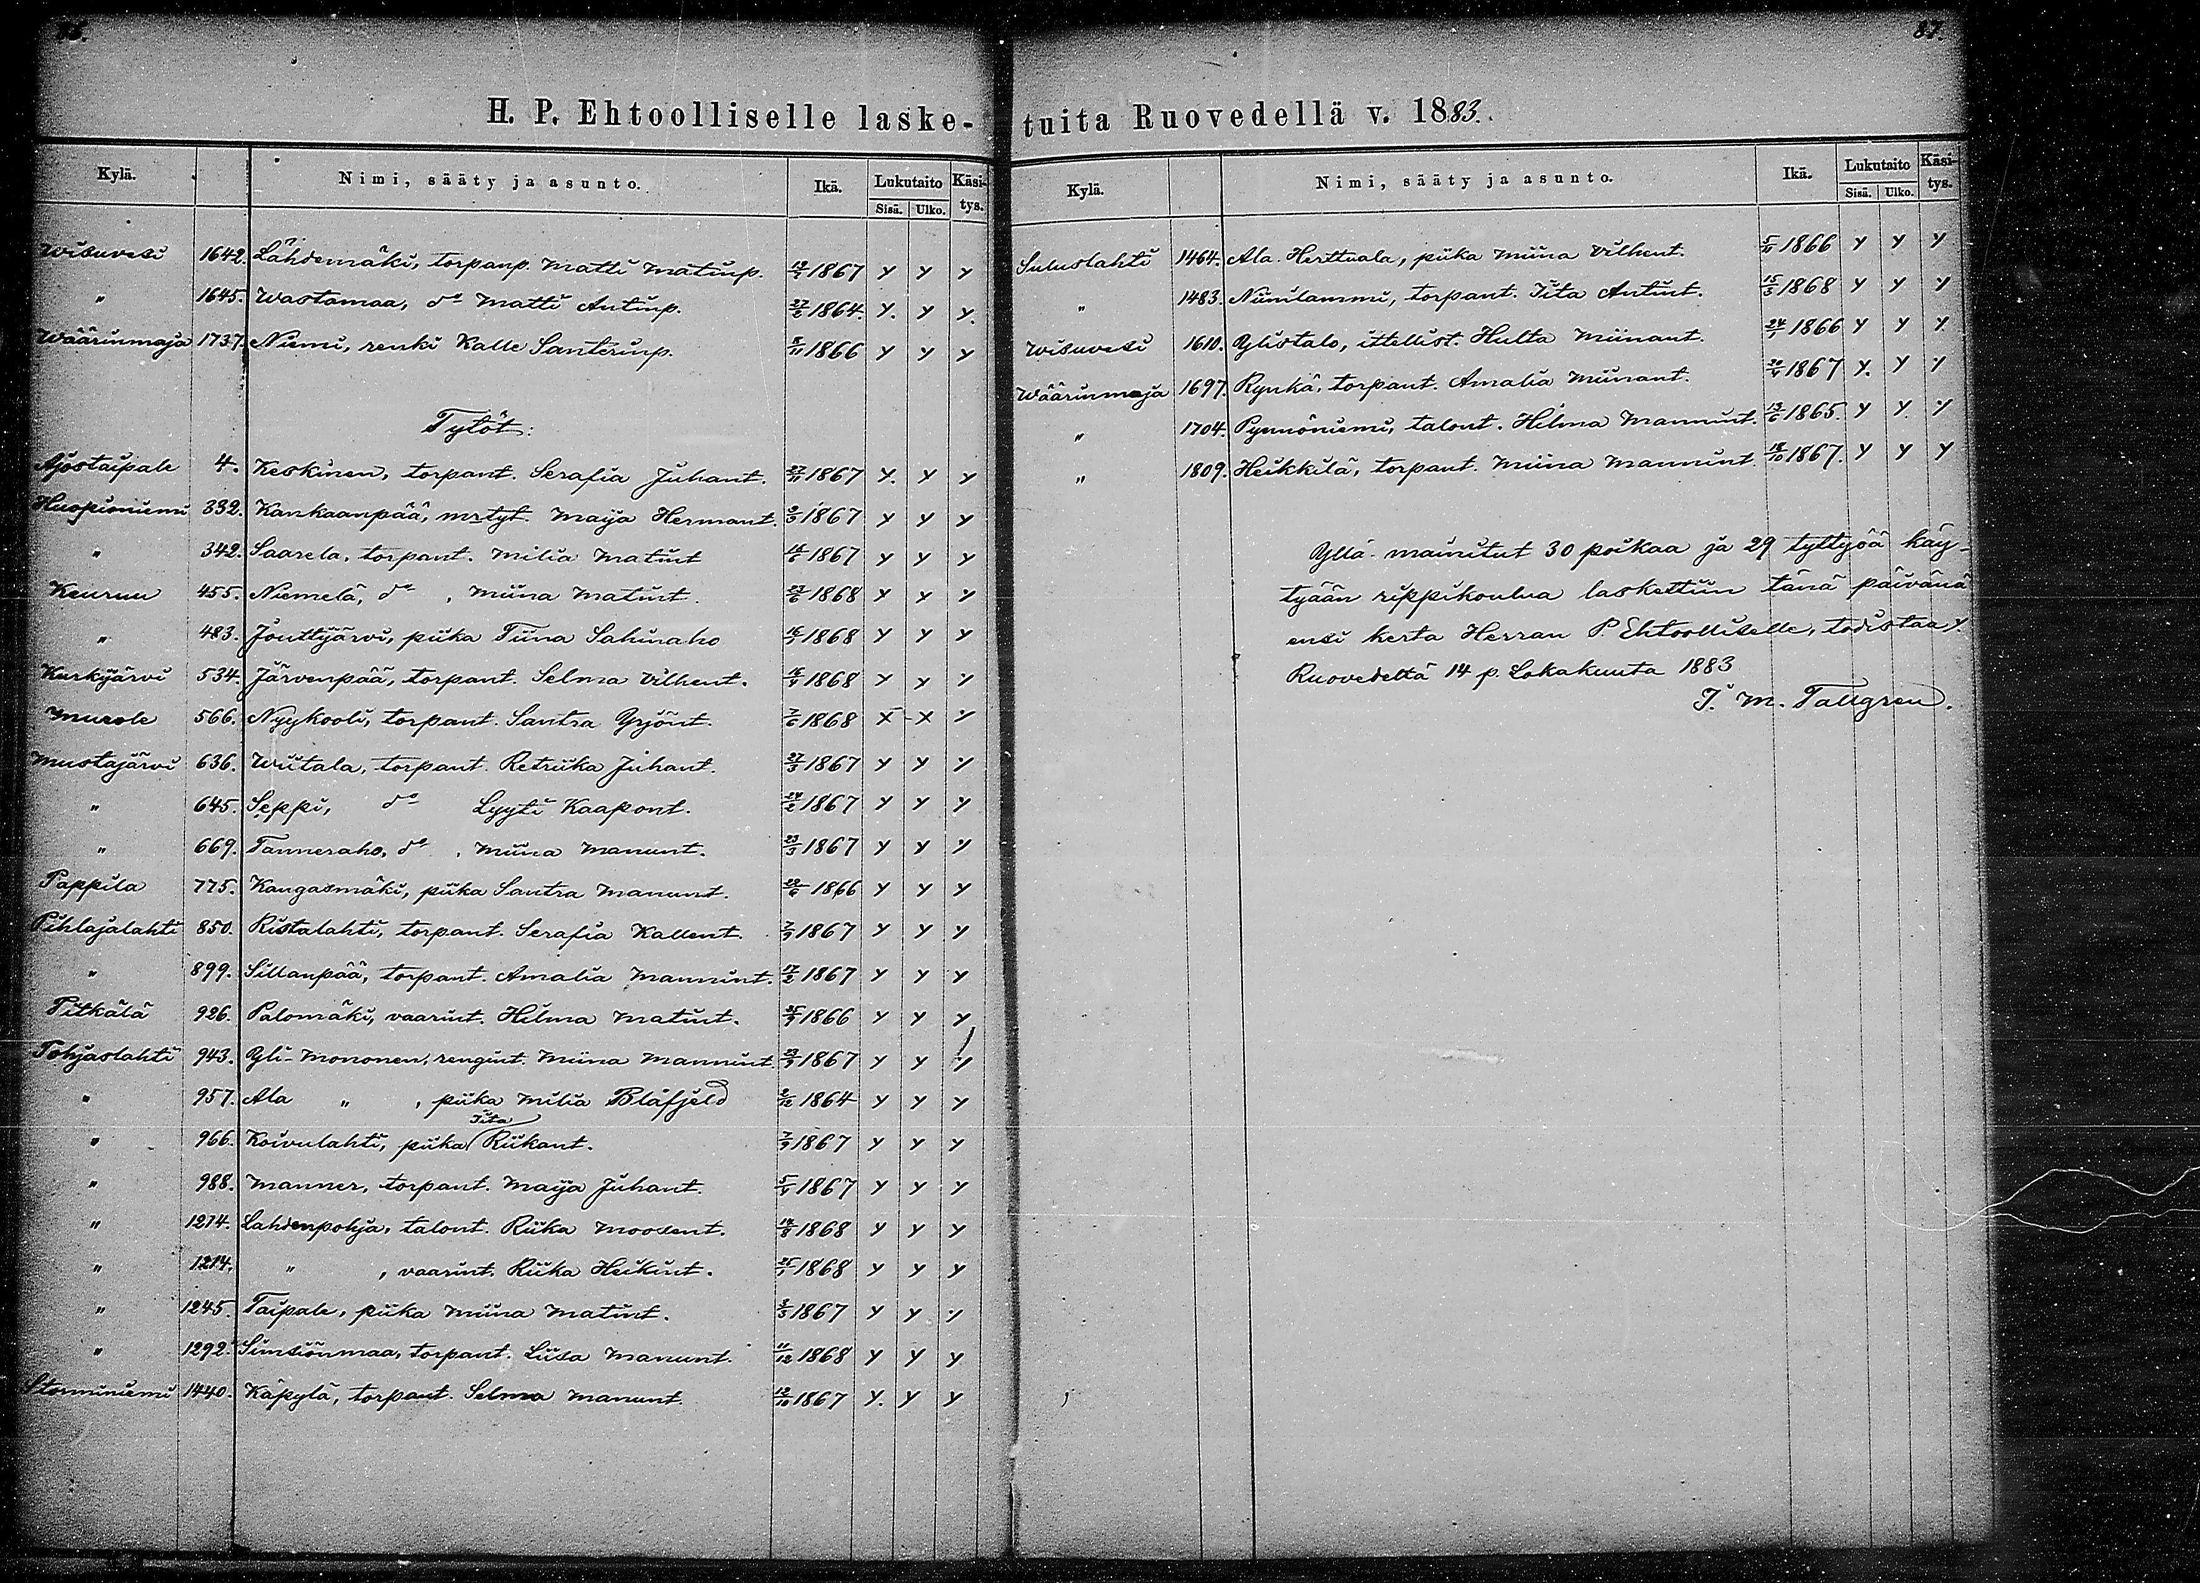 86.
H. P. Ehtoolliselle laske-
Kylä. Nimi, sääty ja asunto. Ikä. Lukutaito Käsi-
Sisä. Ulko. tys.
Wisuvesi 1642. Lähdemäki, torpanp. Matti Matinp. 1867 y y y
" 1645. Wastamaa, do Matti Antinp. 27/2 1864. y. y y.
Wäärinmaja 1737. Niemi, renki Kalle Santerinp. 8/11 1866 y y y
Tytöt:
Ajostaipale 4. Keskinen, torpant. Serafia Juhant. 27/11 1867 y. y y
Huopioniemi 332. Kankaanpää, mrtyt. Maija Hermant. 9/3 1867 y y y
" 342. Saarela, torpant. Milia Matint 14/6 1867 y y y
Keuruu 455. Niemelä, do , Miina Matint. 23/6 1868 y y y
" 483. Jouttijärvi, piika Tiina Sahinaho 1868 y y y
Kurkijärvi 534. Järvenpää, torpant. Selma Vilhent. 1868 y y y
Murole 566. Nyykooli, torpant. Santra Yrjönt. 7/6 1868 x - x y
Mustajärvi 636. Wiitala, torpant. Retriika Juhant. 27/3 1867 y y y
" 645. Seppi, do Lyyti Kaapont. 24/2 1867 y y y
" 669. Tanneraho, do , Miina Manunt. 23/3 1867 y y y
Pappila 775. Kangasmäki, piika Santra Manunt. 29/6 1866 y y y
Pihlajalahti 850. Ristalahti, torpant. Serafia Kallent. 7/9 1867 y y y
" 899. Sillanpää, torpant. Amalia Mannint. 17/2 1867 y y y
Pitkälä 926. Palomäki, vaarint. Hilma Matint. 1866 y y y
Pohjaslahti 943. Yli-Mononen, rengint. Miina Mannint. 23/9 1867 y y y
" 957. Ala " , piika Milia Blåfjeld 9/12 1864 y y y
Iita
" 966. Koivulahti, piika Riikant. 7/9 1867 y y y
" 988. Manner, torpant. Maija Juhant. 1867 y y y
" 1214. Lahdenpohja, talont. Riika Moosent. 1868 y y y
" 1214. " , vaarint. Riika Heikint. 25/1 1868 y y y
" 1245. Taipale, piika Miina Matint. 1867 y y y
" 1292. Simsiönmaa, torpant. Liisa Manunt. 11/12 1868 y y y
Storminiemi 1440. Käpylä, torpant. Selma Manunt. 12/10 1867 y. y y
87.
tuita Ruovedellä v. 1883.
Kylä. Nimi, sääty ja asunto. Ikä. Lukutaito Käsi-
Sisä. Ulko. tys.
Suluslahti 1464. Ala-Herttuala, piika Miina Vilhent. 5/11 1866 y y y
" 1483. Niinilammi, torpant. Iita Antint. 15/3 1868 y y y
Wisuvesi 1610. Ylistalo, ittellist. Hulta Miinant. 24/1 1866 y y y
Wäärinmaja 1697. Rynkä, torpant. Amalia Miinant. 1867 y. y y
" 1704. Pynnöniemi, talont. Hilma Mannint. 13/6 1865. y y. y
" 1809. Heikkilä, torpant. Miina Mannint. 18/10 1867. y y y
Yllä-mainitut 30 poikaa ja 29 tyttyöä käy-
tyään rippikoulua laskettiin tänä päivänä
ensi kerta Herran P. Ehtoolliselle, todistaa,
Ruovedeltä 14 p. Lokakuuta 1883
I. M. Tallgren.